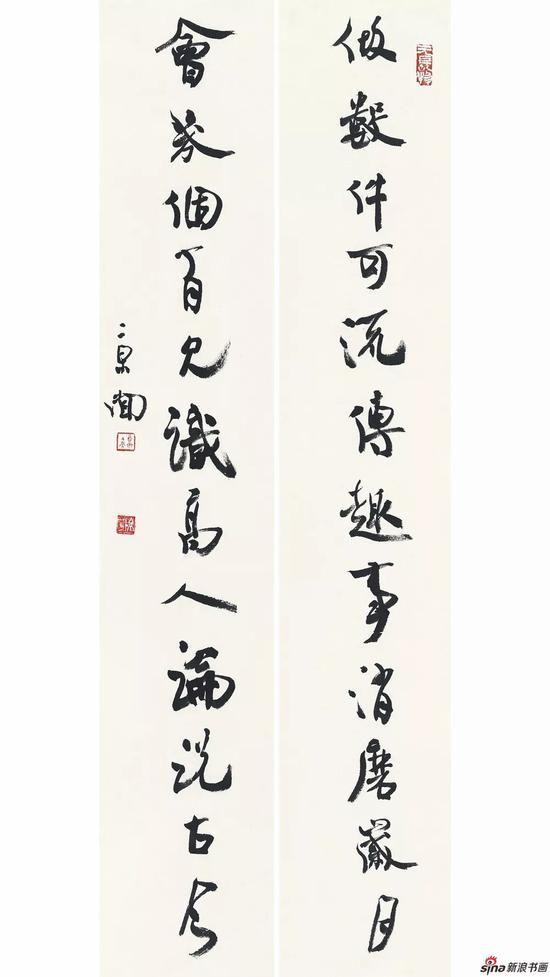 做數件可流傳趣事消磨歲月
會幾個有見識高人論說古今
sina新浪书画